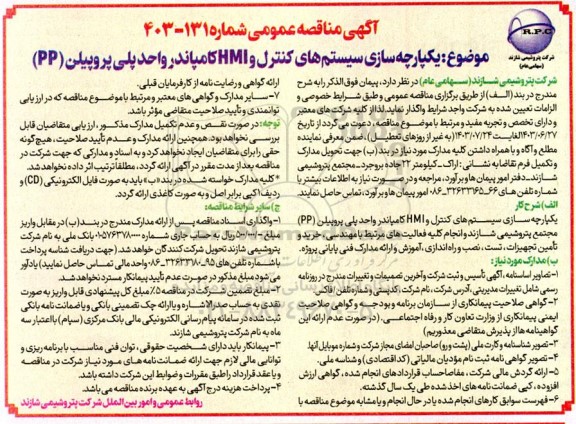 آگهی مناقصه عمومی شماره ۱۳۱-۴۰۳
موضوع: یکپارچه سازی سیستم های کنترل و HMI کامپاندر واحد پلی پروپیلن (PP)
R.P.C
شرکت پتروشیمی شازند
(سهامی عام)
شرکت پتروشیمی شازند (سهامی عام) در نظر دارد، پیمان فوق الذکر را به شرح
مندرج در بند (الف) از طریق برگزاری مناقصه عمومی و طبق شرایط خصوصی و
الزامات تعیین شده به شرکت واجد شرایط واگذار نماید. لذا از کلیه شرکت های معتبر
و دارای تخصص و تجربه مفید و مرتبط با موضوع مناقصه دعوت می گردد از تاریخ
۱۴۰۳/۰۶/۲۷ الغایت ۱۴۰۳/۰۷/۲۴ (به غیر از روزهای تعطیل) ضمن معرفی نماینده
مطلع و آگاه و با همراه داشتن کلیه مدارک مورد نیاز در بند (ب) جهت تحویل مدارک
و تکمیل فرم تقاضا به نشانی: اراک_کیلومتر ۲۲ جاده بروجرد_مجتمع پتروشیمی
شازند_دفتر امور پیمان ها برآورد، مراجعه و در صورت نیاز به اطلاعات بیشتر با
شماره تلفن های ۶۶-۳۲۶۳۳۲۶۵-۰۸۶ امور پیمان ها و برآورد، تماس حاصل نمایند.
الف) شرح کار
یکپارچه سازی سیستم های کنترل و HMI کامپاندر واحد پلی پروپیلن (PP)
مجتمع پتروشیمی شازند و انجام کلیه فعالیت های مرتبط با مهندسی، خرید و
تأمین تجهیزات، تست، نصب و راه اندازی، آموزش و ارائه مدارک فنی پایانی پروژه.
ب) مدارک مورد نیاز:
۱- تصاویر اساسنامه، آگهی تأسیس و ثبت شرکت و آخرین تصمیمات و تغییرات مندرج در روزنامه
رسمی شامل تغییرات مدیریتی، آدرس شرکت، نام شرکت، آدرس ایمیل، شماره تلفن و فاکس.
۲- گواهی صلاحیت پیمانکاری از سازمان برنامه و بودجه و گواهی صلاحیت
ایمنی پیمانکاری از وزارت تعاون کار و رفاه اجتماعی. (در صورت عدم ارائه این
گواهینامه ها از پذیرش متقاضی معذوریم)
۳- تصویر شناسنامه و کارت ملی (پشت و رو) صاحبان امضای مجاز شرکت و شماره موبایل آنها.
۴- تصویر گواهی نامه ثبت نام مؤدیان مالیاتی (کد اقتصادی) و شناسه ملی.
۵- ارائه گردش مالی شرکت، مفاصاحساب قراردادهای انجام شده، گواهی ارزش
افزوده، کپی ضمانت نامه های اخذ شده طی یک سال گذشته.
۶- فهرست سوابق کارهای انجام شده یا در حال انجام و یا مشابه موضوع مناقصه با
ارائه گواهی و رضایت نامه از کارفرمایان قبلی.
۷- سایر مدارک و گواهی های معتبر و مرتبط با موضوع مناقصه که در ارزیابی
توانمندی و تأیید صلاحیت متقاضی مؤثر باشد.
توجه: در صورت نقص و عدم تکمیل مدارک مذکور، ارزیابی متقاضیان قابل
بررسی نخواهد بود. همچنین ارائه مدارک و عدم تأیید صلاحیت، هیچ گونه
حقی را برای متقاضیان ایجاد نخواهد کرد و به اسناد و مدارکی که جهت شرکت در
مناقصه بعد از مدت مقرر در آگهی ارائه گردد، مطلقاً ترتیب اثر داده نخواهد شد.
*کلیه مدارک خواسته شده در بند «ب» باید به صورت فایل الکترونیکی (CD) و
ردیف کپی برابر اصل و به صورت کاغذی ارائه گردد.
ج) سایر شرایط مناقصه:
۱- واگذاری اسناد مناقصه پس از ارائه مدارک مندرج در بند (ب) در مقابل واریز
مبلغ ریال به حساب جاری شماره بانک ملی به نام شرکت
پتروشیمی شازند تحویل شرکت کنندگان خواهد شد. (جهت دریافت شناسه پرداخت
با شماره تلفن های واحد مالی تماس حاصل نمایید) یادآور
می شود مبلغ مذکور در صورت عدم تأیید پیمانکار مسترد نخواهد شد.
۲- مبلغ تضمین سپرده شرکت در مناقصه ۵٪ مبلغ کل پیشنهادی قابل واریز به صورت
نقدی به حساب مندرج در بالا اشاره و یا ارائه چک تضمینی بانکی و یا ضمانت نامه بانکی
ثبت شده در سامانه پیام رسانی الکترونیکی مالی بانک مرکزی (سپام) با اعتبار سه
ماه به نام شرکت پتروشیمی شازند.
۳- پیمانکار باید دارای شخصیت حقوقی، توان فنی مناسب با برنامه ریزی و
توانایی مالی لازم جهت ارائه ضمانت نامه های مورد نیاز شرکت در مناقصه
و یا عقد قرارداد را طبق مقررات و ضوابط این شرکت داشته باشد.
۴- پرداخت هزینه درج آگهی به عهده برنده مناقصه می باشد.
روابط عمومی و امور بین الملل شرکت پتروشیمی شازند